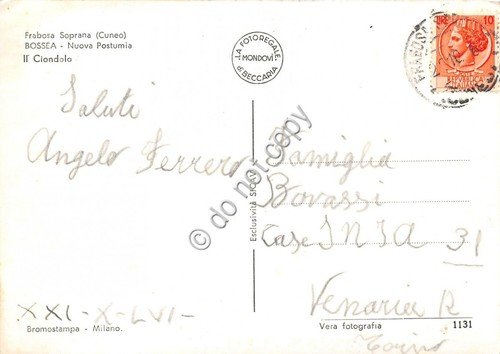 Frabosa Soprana (Cuneo)
BOSSEA - Nuova Postumia
Il Ciondolo
LA FOTOREGALE
MONDOVÌ
di BECCARIA
LIRE 10
REPUBBLICA
ITALIANA
FRABOSA
Saluti
Angelo Ferrero
Famiglia
Bovassi
Case INIA 31
Venaria R
Torino
XXI-X-LVI-
Bromostampa - Milano.
Esclusività S.I.C.A.V.
Vera fotografia
1131
© do not copy